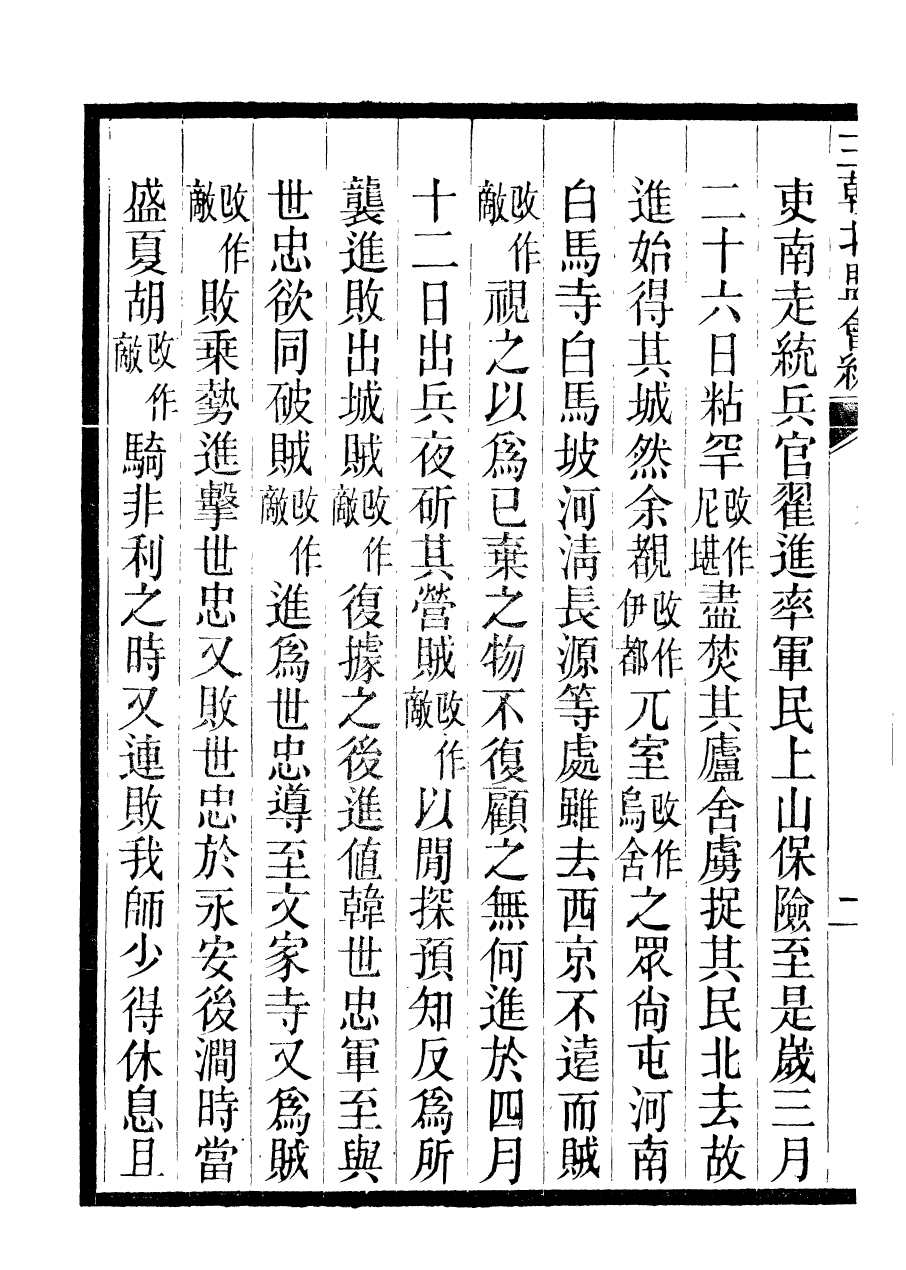 三朝北盟會編
二
吏南走統兵官翟進率軍民上山保險至是歲三月
二十六日粘罕改作尼堪盡焚其廬舍虜捉其民北去故
進始得其城然余覩改作伊都兀室改作烏舍之眾尙屯河南
白馬寺白馬坡河淸長源等處雖去西京不遠而賊
改作敵視之以爲已棄之物不復顧之無何進於四月
十二日出兵夜斫其營賊改作敵以閒探預知反爲所
襲進敗出城賊改作敵復據之後進值韓世忠軍至與
世忠欲同破賊改作敵進爲世忠導至文家寺又爲賊
改作敵敗乘勢進擊世忠又敗世忠於永安後澗時當
盛夏胡改作敵騎非利之時又連敗我師少得休息且